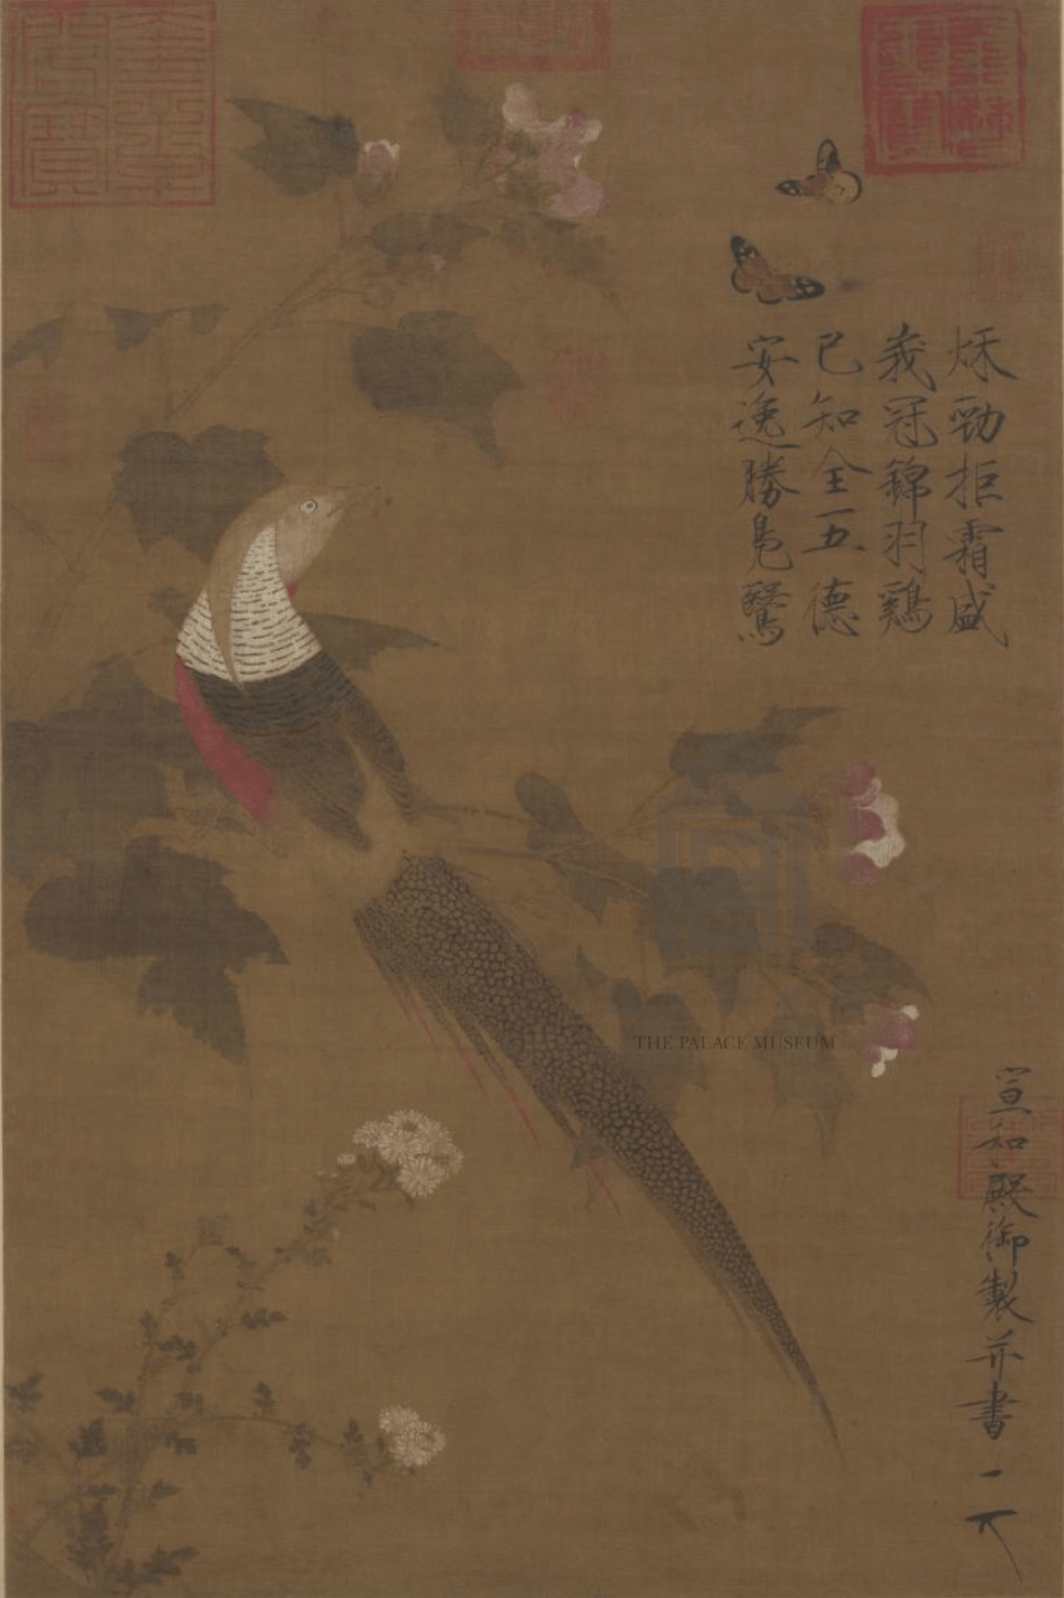 秌勁拒霜盛
峩冠錦羽鷄
已知全五德
安逸勝鳧鷖
宣和殿御製并書
奎章閣寶
THE PALACE MUSEUM